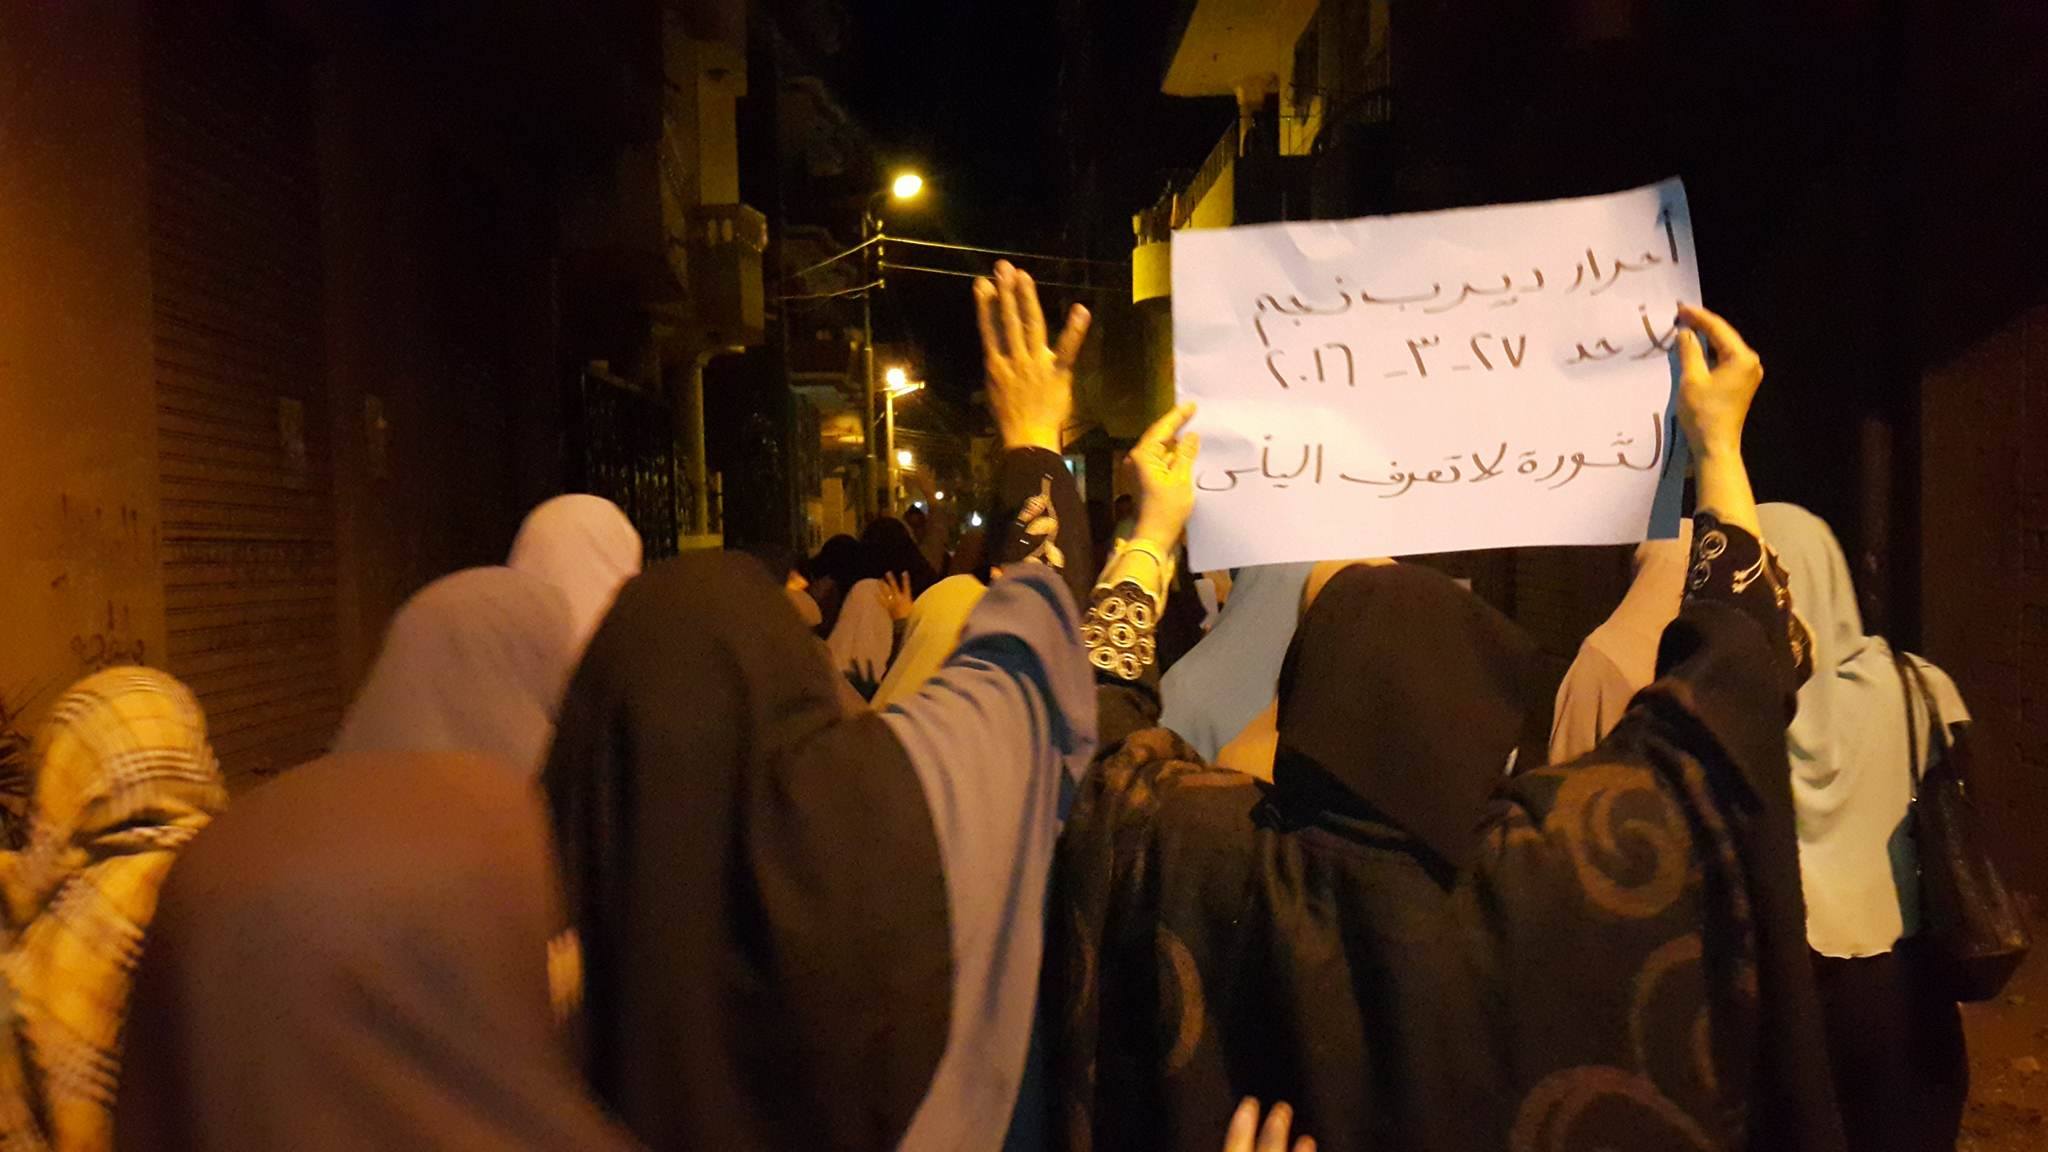 أحرار ديرب نجم
الأحد ٢٧-٣-٢٠١٦
الثورة لا تعرف اليأس